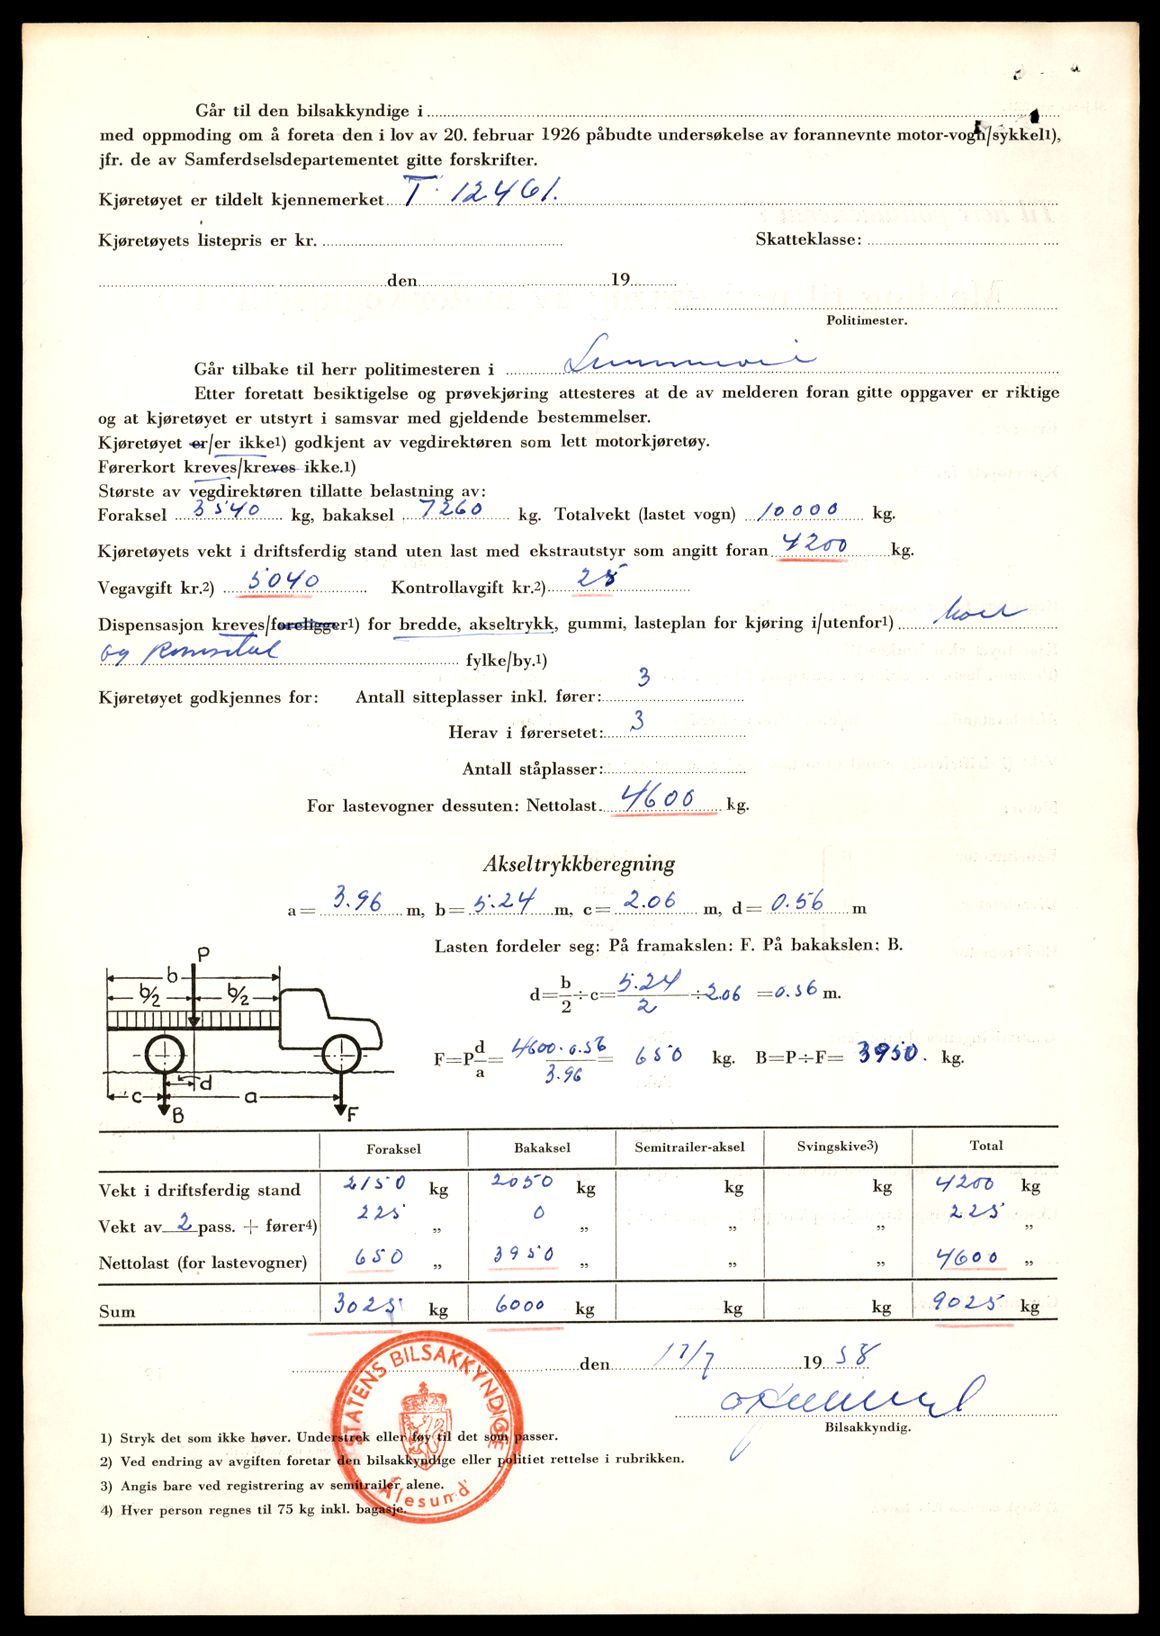 Går til den bilsakkyndige i
med oppmoding om å foreta den i lov av 20. februar 1926 påbudte undersøkelse av forannevnte motor-vogn/sykkel1),
jfr. de av Samferdselsdepartementet gitte forskrifter.
Kjøretøyet er tildelt kjennemerket T. 12461.
Kjøretøyets listepris er kr. Skatteklasse:
den 19
Politimester.
Går tilbake til herr politimesteren i Sunnmøre
Etter foretatt besiktigelse og prøvekjøring attesteres at de av melderen foran gitte oppgaver er riktige
og at kjøretøyet er utstyrt i samsvar med gjeldende bestemmelser.
Kjøretøyet er/er ikke1) godkjent av vegdirektøren som lett motorkjøretøy.
Førerkort kreves/kreves ikke.1)
Største av vegdirektøren tillatte belastning av:
Foraksel 3540 kg, bakaksel 7260 kg. Totalvekt (lastet vogn) 10000 kg.
Kjøretøyets vekt i driftsferdig stand uten last med ekstrautstyr som angitt foran 4200 kg.
Vegavgift kr.2) 5040 Kontrollavgift kr.2) 25
Dispensasjon kreves/foreligger1) for bredde, akseltrykk, gummi, lasteplan for kjøring i/utenfor1) Møre
og Romsdal fylke/by.1)
Kjøretøyet godkjennes for: Antall sitteplasser inkl. fører: 3
Herav i førersetet: 3
Antall ståplasser:
For lastevogner dessuten: Nettolast 4600 kg.
Akseltrykkberegning
a= 3.96 m, b= 5.24 m, c= 2.06 m, d= 0.56 m
Lasten fordeler seg: På framakslen: F. På bakakslen: B.
P
b
b/2 b/2
d=b/2÷c= 5.24/2 ÷2.06 =0.56 m.
F=P d/a= 4600.0.56/3.96 = 650 kg. B=P÷F= 3950. kg.
d
c a
B F
Foraksel Bakaksel Semitrailer-aksel Svingskive3) Total
Vekt i driftsferdig stand 2150 kg 2050 kg kg kg 4200 kg
Vekt av 2 pass. + fører4) 225 „ 0 „ „ „ 225 „
Nettolast (for lastevogner) 650 „ 3950 „ „ „ 4600 „
Sum 3025 kg 6000 kg kg kg 9025 kg
den 17/7 1958
Bilsakkyndig.
STATENS BILSAKKYNDIGE
Ålesund
1) Stryk det som ikke høver. Understrek eller føy til det som passer.
2) Ved endring av avgiften foretar den bilsakkyndige eller politiet rettelse i rubrikken.
3) Angis bare ved registrering av semitrailer alene.
4) Hver person regnes til 75 kg inkl. bagasje.